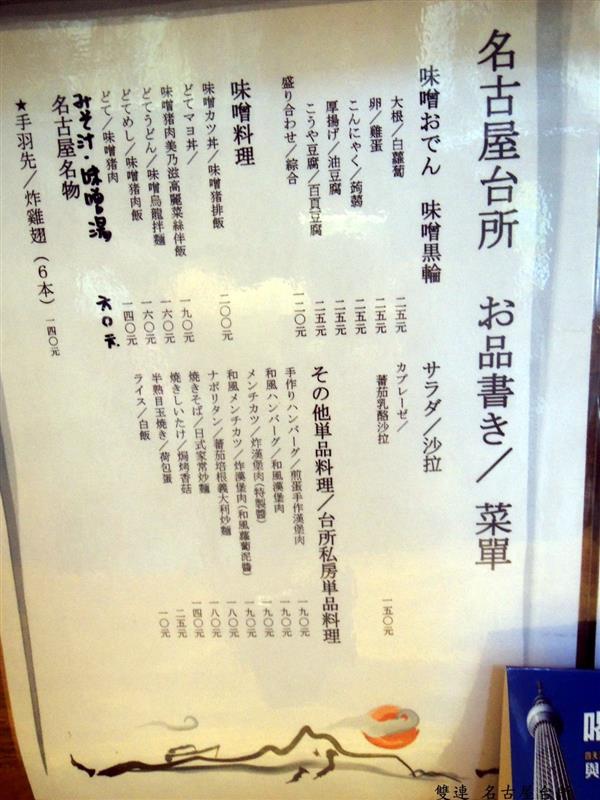 名古屋台所　お品書き／菜單
味噌おでん　味噌黒輪
大根／白蘿蔔　二五元
卵／雞蛋　二五元
こんにゃく／蒟蒻　二五元
厚揚げ／油豆腐　二五元
こうや豆腐／百頁豆腐　二五元
盛り合わせ／綜合　一二〇元
味噌料理
味噌カツ丼／味噌豬排飯　二〇〇元
どてマヨ丼／
味噌豬肉美乃滋高麗菜絲伴飯　一九〇元
どてうどん／味噌烏龍拌麵　一六〇元
どてめし／味噌豬肉飯　一六〇元
どて／味噌豬肉　一四〇元
みそ汁・味噌湯　六〇元
名古屋名物
★手羽先／炸雞翅（6本）一四〇元
サラダ／沙拉
カプレーゼ／
蕃茄乳酪沙拉　一五〇元
その他単品料理／台所私房単品料理
手作りハンバーグ／煎蛋手作漢堡肉　一九〇元
和風ハンバーグ／和風漢堡肉　一九〇元
メンチカツ／炸漢堡肉（特製醬）　一九〇元
和風メンチカツ／炸漢堡肉（和風蘿蔔泥醬）　一九〇元
ナポリタン／蕃茄培根義大利炒麵　一八〇元
焼きそば／日式家常炒麵　一八〇元
焼きしいたけ／焗烤香菇　一四〇元
半熟目玉焼き／荷包蛋　二五元
ライス／白飯　一〇元
雙連 名古屋台所